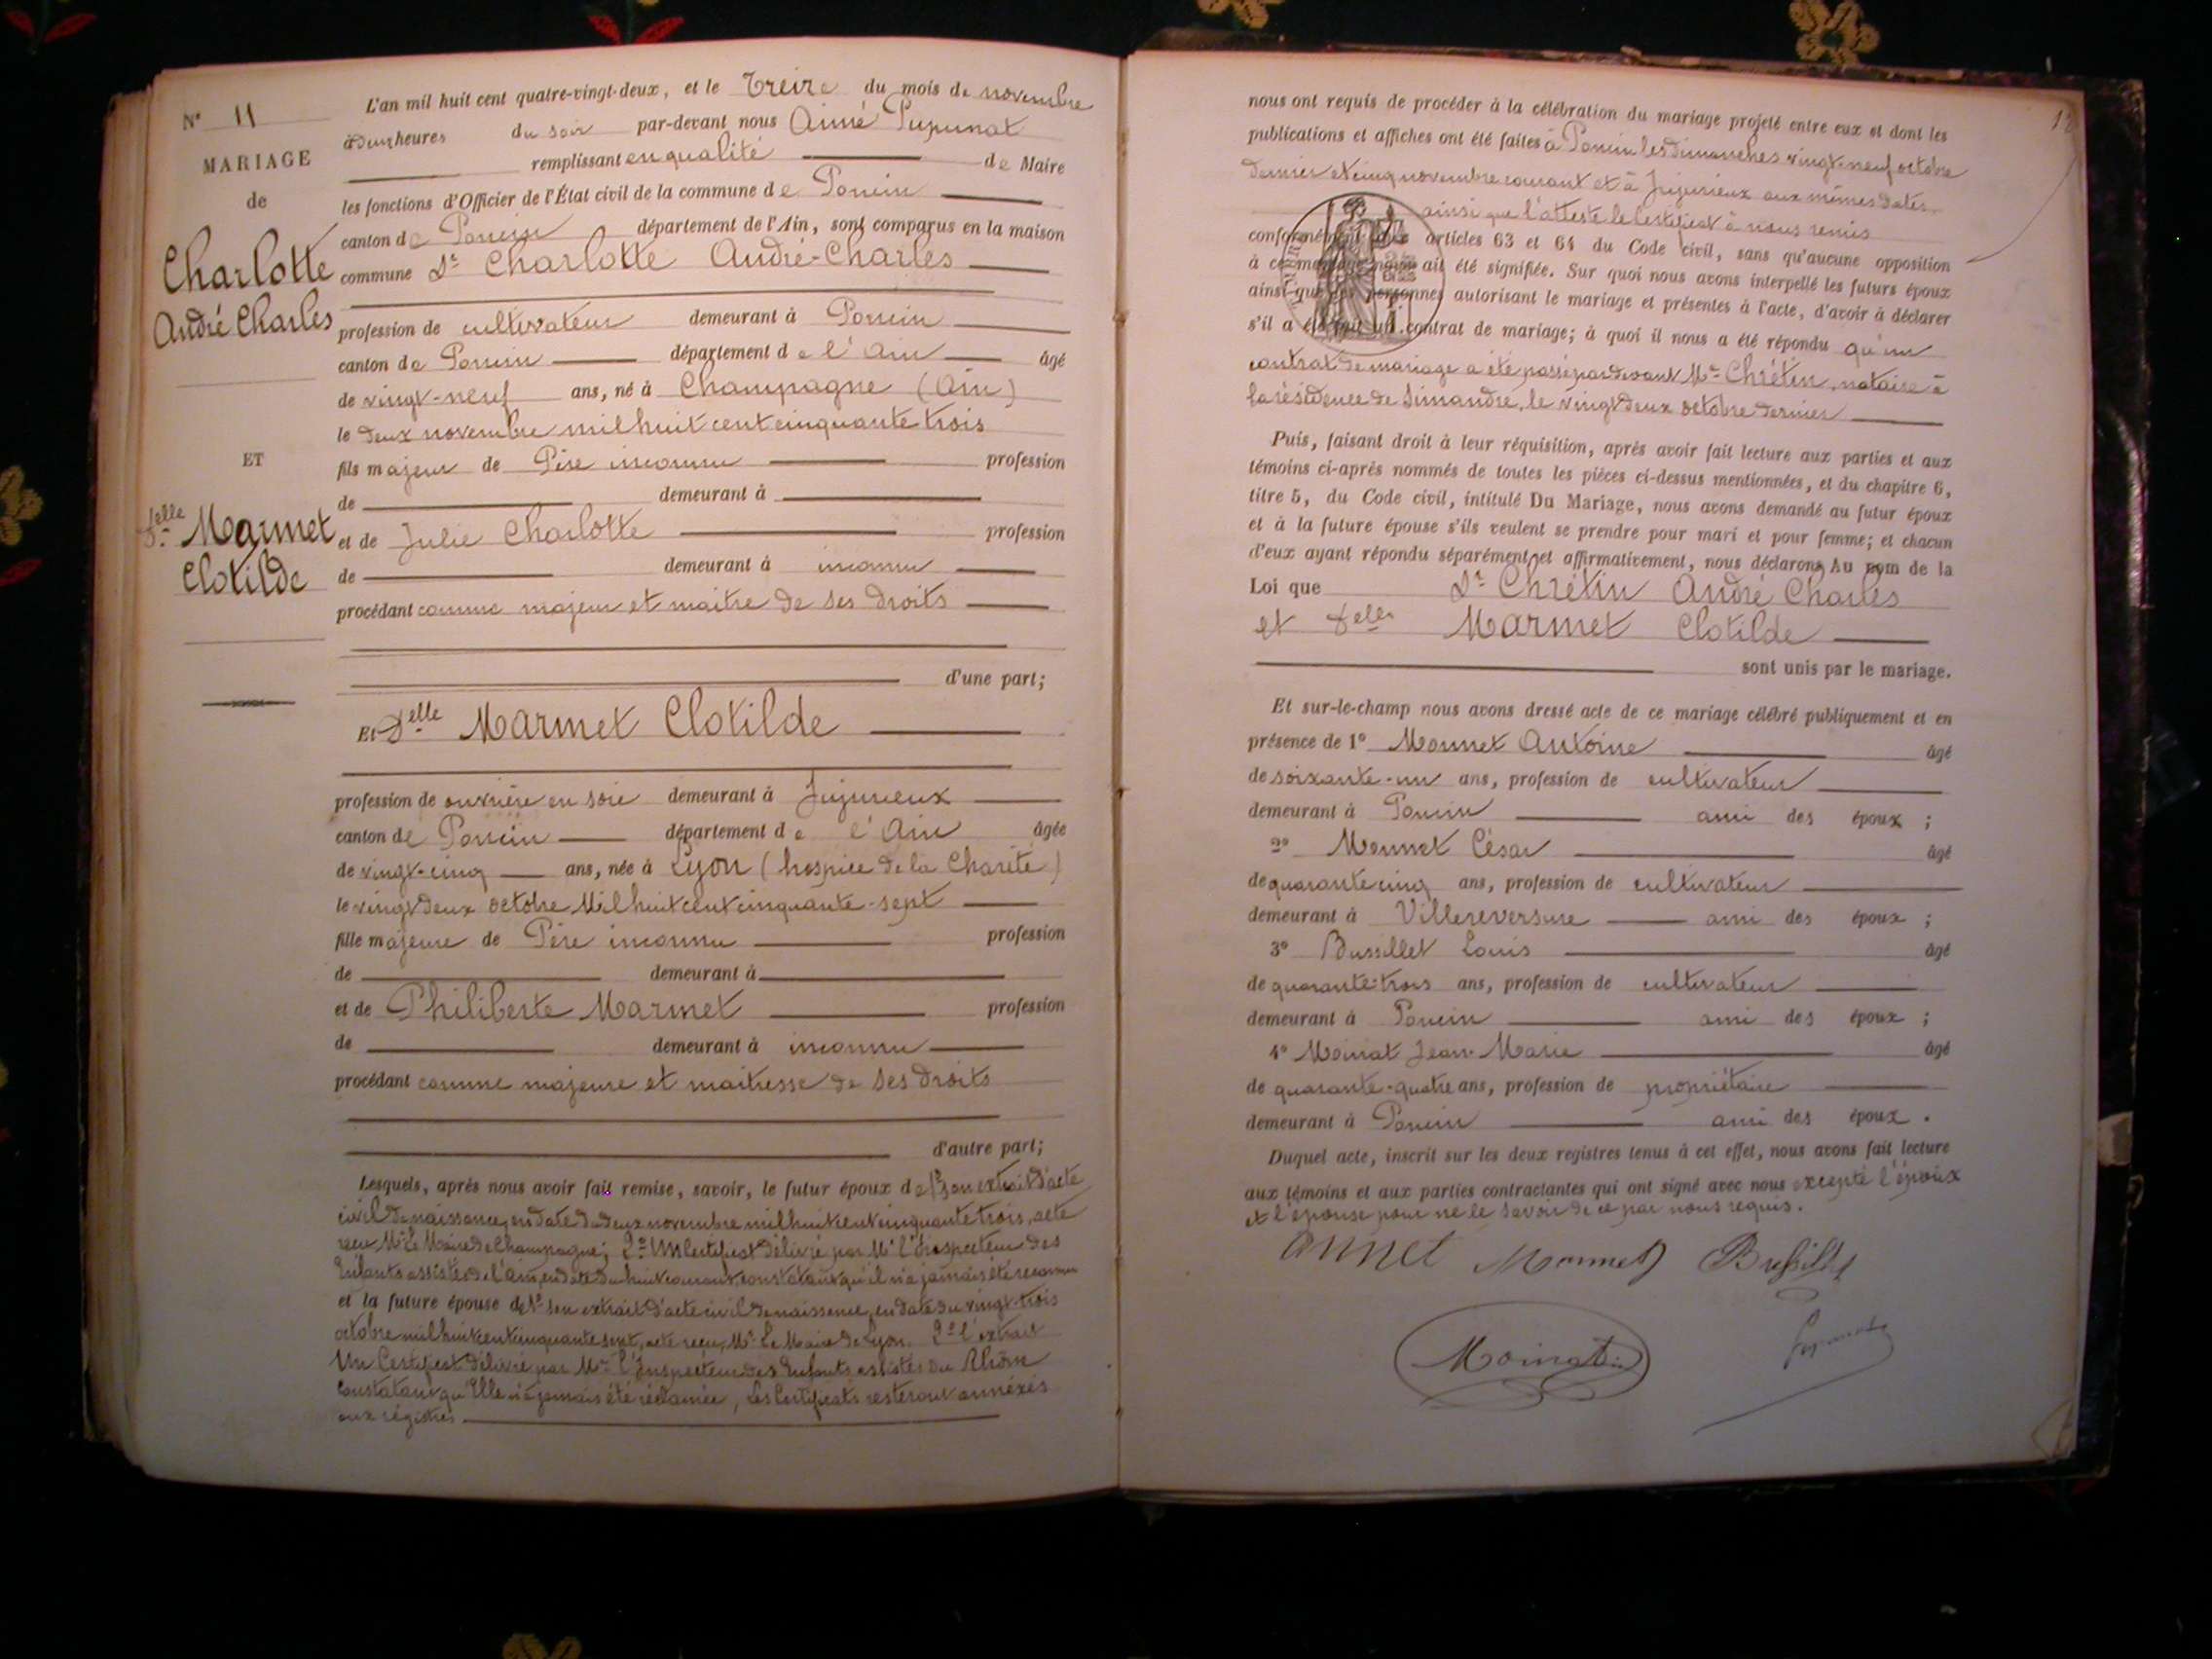 N° 11
MARIAGE
de
Charlotte
André Charles
ET
Delle Marmet
Clotilde
L'an mil huit cent quatre-vingt-deux, et le Treize du mois de novembre
à deux heures du soir par-devant nous Aimé Pupunat
remplissant en qualité de Maire
les fonctions d'Officier de l'État civil de la commune de Poncin
canton de Poncin département de l'Ain, sont comparus en la maison
commune Sr Charlotte André-Charles
profession de cultivateur demeurant à Poncin
canton de Poncin département de l'Ain âgé
de vingt-neuf ans, né à Champagne (Ain)
le deux novembre mil huit cent cinquante trois
fils majeur de Père inconnu profession
de demeurant à
et de Julie Charlotte profession
de demeurant à inconnu
procédant comme majeur et maitre de ses droits
d'une part;
Et Delle Marmet Clotilde
profession de ouvrière en soie demeurant à Jujurieux
canton de Poncin département de l'Ain âgée
de vingt-cinq ans, née à Lyon (hospice de la Charité)
le vingt deux octobre Mil huit cent cinquante-sept
fille majeure de Père inconnu profession
de demeurant à
et de Philiberte Marmet profession
de demeurant à inconnu
procédant comme majeure et maitresse de ses droits
d'autre part;
Lesquels, après nous avoir fait remise, savoir, le futur époux de 1° son extrait d'acte
civil de naissance, en date du deux novembre mil huit cent cinquante trois, acte
reçu Mr Le Maire de Champagne; 2° Un Certificat délivré par Mr l'Inspecteur des
Enfants assistés de l'Ain, en date du huit courant, constatant qu'il n'a jamais été reconnu
et la future épouse de 1° son extrait d'acte civil de naissance, en date du vingt-trois
octobre mil huit cent cinquante sept, acte reçu, Mr Le Maire de Lyon. 2° l'extrait
Un Certificat délivré par Mr l'Inspecteur des Enfants assistés du Rhône
Constatant qu'Elle n'a jamais été réclamée, Les Certificats resteront annéxés
aux régistres.
nous ont requis de procéder à la célébration du mariage projeté entre eux et dont les
publications et affiches ont été faites à Poncin les dimanches vingt-neuf octobre
dernier et cinq novembre courant et à Jujurieux aux mêmes dates,
ainsi que l'atteste le Certificat à nous remis
conformément aux articles 63 et 64 du Code civil, sans qu'aucune opposition
à ce mariage nous ait été signifiée. Sur quoi nous avons interpellé les futurs époux
ainsi que les personnes autorisant le mariage et présentes à l'acte, d'avoir à déclarer
s'il a été fait un contrat de mariage; à quoi il nous a été répondu qu'un
contrat de mariage a été passé pardevant Mr Chrétin, notaire à
la résidence de Simandre, le vingt deux octobre dernier
Puis, faisant droit à leur réquisition, après avoir fait lecture aux parties et aux
témoins ci-après nommés de toutes les pièces ci-dessus mentionnées, et du chapitre 6,
titre 5, du Code civil, intitulé Du Mariage, nous avons demandé au futur époux
et à la future épouse s'ils veulent se prendre pour mari et pour femme; et chacun
d'eux ayant répondu séparément et affirmativement, nous déclarons Au nom de la
Loi que Sr Chrétin André Charles
et Delle Marmet Clotilde
sont unis par le mariage.
Et sur-le-champ nous avons dressé acte de ce mariage célébré publiquement et en
présence de 1° Monnet Antoine âgé
de soixante-un ans, profession de cultivateur
demeurant à Poncin ami des époux ;
2° Monnet César âgé
de quarante cinq ans, profession de cultivateur
demeurant à Villereversure ami des époux ;
3° Bussillet Louis âgé
de quarante-trois ans, profession de cultivateur
demeurant à Poncin ami des époux ;
4° Moinat Jean-Marie âgé
de quarante-quatre ans, profession de propriétaire
demeurant à Poncin ami des époux .
Duquel acte, inscrit sur les deux registres tenus à cet effet, nous avons fait lecture
aux témoins et aux parties contractantes qui ont signé avec nous excepté l'époux
et l'épouse pour ne le savoir de ce par nous requis.
Monnet
Moinat